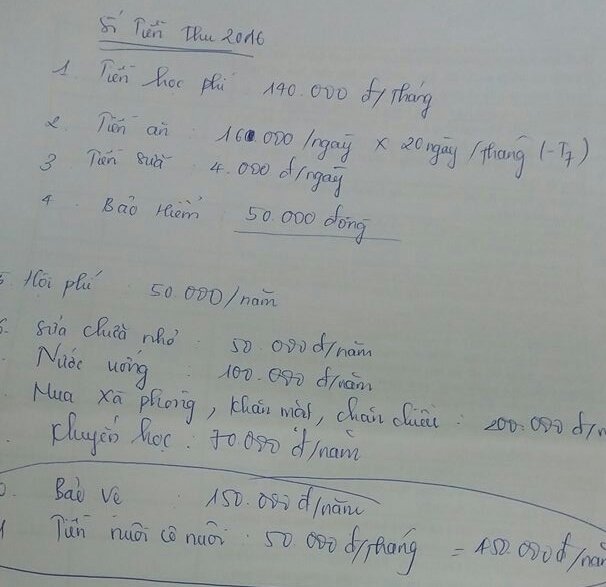 Số Tiền Thu 2016
1. Tiền học phí 140.000 đ/tháng
2. Tiền ăn : 16.000/ngày x 20 ngày/tháng (-T7)
3 Tiền sữa : 4.000 đ/ngày
4. Bảo Hiểm 50.000 đồng
5. Hội phí 50.000/năm
6. Sửa chữa nhỏ : 50.000 đ/năm
. Nước uống : 100.000 đ/năm
. Mua xà phòng, khăn mặt, chăn chiếu : 200.000 đ/n
. Khuyến học : 70000 đ/năm
0. Bảo vệ : 150.000 đ/năm
1 Tiền nuôi cô nuôi : 50.000 đ/tháng = 450.000 đ/năm